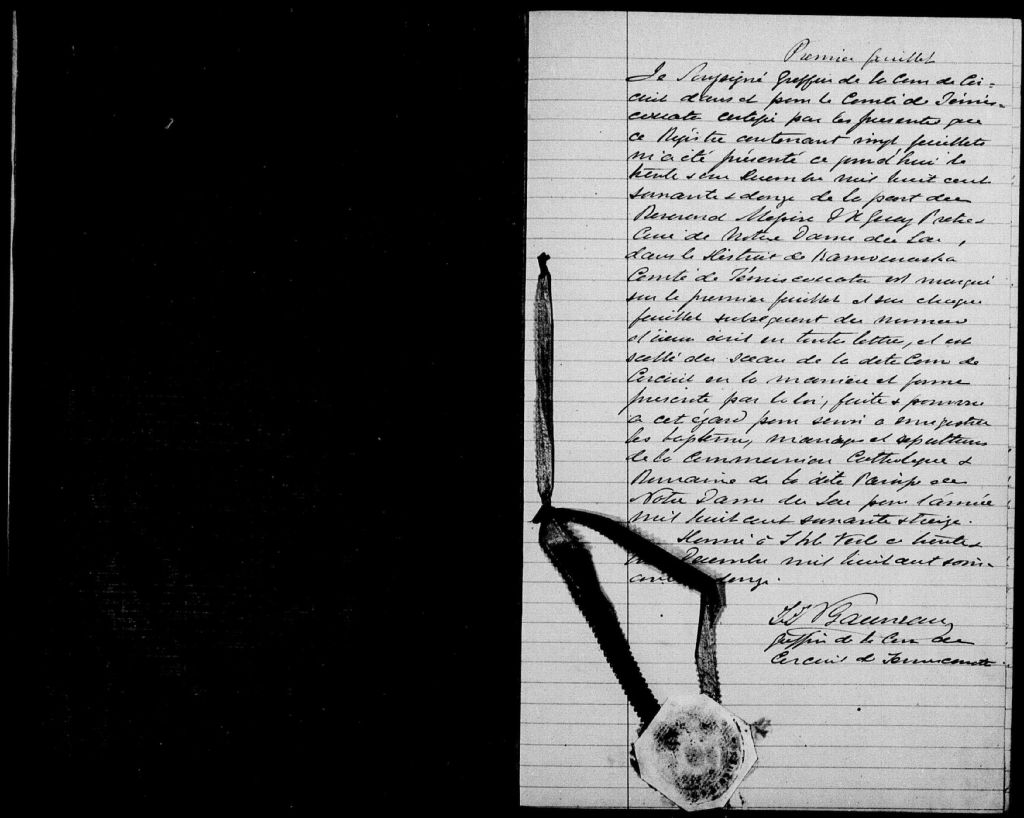 Premier feuillet
Je Soussigné Greffier de la Cour de Cir-
cuit dans et pour le Comté de Témis-
couata certifie par les presentes que
ce Régistre contenant vingt feuillets
m'a été présenté ce jourd'hui le
trente & un Decembre mil huit cent
soixante & douze de la part du
Reverend Messire Guay Pretre
Curé de Notre Dame du Lac,
dans le District de Kamouraska
Comté de Témiscouata est marqué
sur le premier feuillet et sur chaque
feuillet subsequent du numero
d'icelui écrit en toute lettre, et est
scellé du sceau de la dite Cour de
Circuit en la maniere et forme
prescrite par la loi, faite & pourvue
a cet égard pour servir a enregistrer
les baptêmes, mariages et sepultures
de la Communion Catholique &
Romaine de la dite Paroisse de
Notre Dame du Lac pour l'année
mil huit cent soixante & treize.
Donné à ce trente &
un Decembre mil huit cent soix-
ante douze.
Greffier de la Cour de
Circuit de Temiscouata